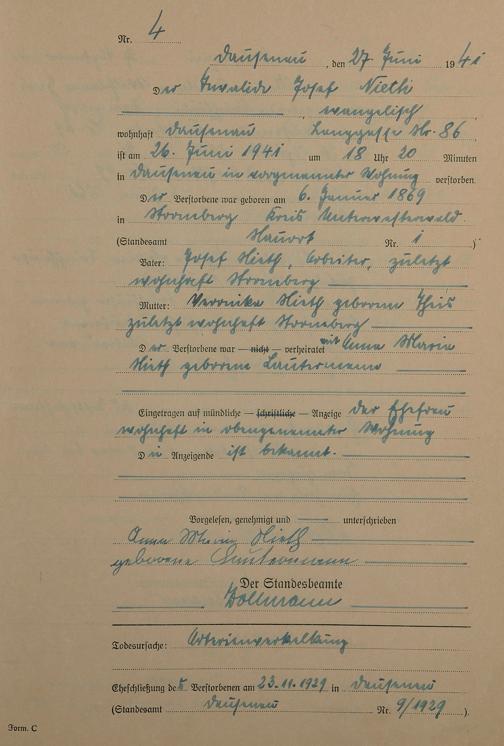 Nr. 4
Dausenau, den 27 Juni 1941
Der Invalide Josef Nieth
evangelisch
wohnhaft Dausenau Langgasse Nr. 86
ist am 26. Juni 1941 um 18 Uhr 20 Minuten
in Dausenau in vorgenannter Wohnung verstorben.
Der Verstorbene war geboren am 6. Januar 1869
in Stromberg Kreis Unterwesterwald
(Standesamt Nauort Nr. 1)
Vater: Josef Nieth, Arbeiter, zuletzt
wohnhaft Stromberg
Mutter: Veronika Nieth geborene Theis
zuletzt wohnhaft Stromberg
Der Verstorbene war — nicht — verheiratet mit Anna Maria
Nieth geborene Lautermann
Eingetragen auf mündliche — schriftliche — Anzeige der Ehefrau
wohnhaft in obengenannter Wohnung
Die Anzeigende ist bekannt.
Vorgelesen, genehmigt und — unterschrieben
Anna Maria Nieth
geborene Lautermann
Der Standesbeamte
Todesursache: Arterienverkalkung
Eheschließung des Verstorbenen am 23.11.1929 in Dausenau
(Standesamt Dausenau Nr. 9/1929).
Form. C